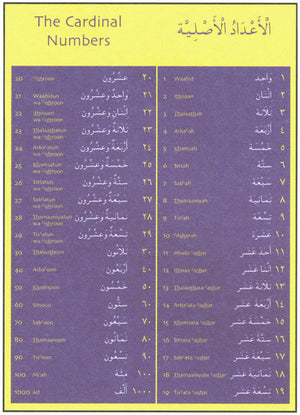 The Cardinal
Numbers
الْأَعْدَادُ الْأَصْلِيَّة
1 Waahid وَاحِد ١
2 Ithnaan اثْنَان ٢
3 Thalaathah ثَلَاثَة ٣
4 Arba'ah أَرْبَعَة ٤
5 Khamsah خَمْسَة ٥
6 Sittah سِتَّة ٦
7 Sab'ah سَبْعَة ٧
8 Thamaaniyah ثَمَانِيَة ٨
9 Tis'ah تِسْعَة ٩
10 'Asharah عَشَرَة ١٠
11 Ahada 'ashar أَحَدَ عَشَر ١١
12 Ithnaa 'ashar اثْنَا عَشَر ١٢
13 Thalaathata 'ashar ثَلَاثَةَ عَشَر ١٣
14 Arba'ata 'ashar أَرْبَعَةَ عَشَر ١٤
15 Khamsata 'ashar خَمْسَةَ عَشَر ١٥
16 Sittata 'ashar سِتَّةَ عَشَر ١٦
17 Sab'ata 'ashar سَبْعَةَ عَشَر ١٧
18 Thamaaniyata 'ashar ثَمَانِيَةَ عَشَر ١٨
19 Tis'ata 'ashar تِسْعَةَ عَشَر ١٩
20 'Ishroon عِشْرُون ٢٠
21 Waahidun wa 'ishroon وَاحِدٌ وَعِشْرُون ٢١
22 Ithnaani wa 'ishroon اثْنَانِ وَعِشْرُون ٢٢
23 Thalaathatun wa 'ishroon ثَلَاثَةٌ وَعِشْرُون ٢٣
24 Arba'atun wa 'ishroon أَرْبَعَةٌ وَعِشْرُون ٢٤
25 Khamsatun wa 'ishroon خَمْسَةٌ وَعِشْرُون ٢٥
26 Sittatun wa 'ishroon سِتَّةٌ وَعِشْرُون ٢٦
27 Sab'atun wa 'ishroon سَبْعَةٌ وَعِشْرُون ٢٧
28 Thamaaniyatun wa 'ishroon ثَمَانِيَةٌ وَعِشْرُون ٢٨
29 Tis'atun wa 'ishroon تِسْعَةٌ وَعِشْرُون ٢٩
30 Thalaathoon ثَلَاثُون ٣٠
40 Arba'oon أَرْبَعُون ٤٠
50 Khamsoon خَمْسُون ٥٠
60 Sittoon سِتُّون ٦٠
70 Sab'oon سَبْعُون ٧٠
80 Thamaanoon ثَمَانُون ٨٠
90 Tis'oon تِسْعُون ٩٠
100 Mi'ah مِئَة ١٠٠
1000 Alf أَلْف ١٠٠٠